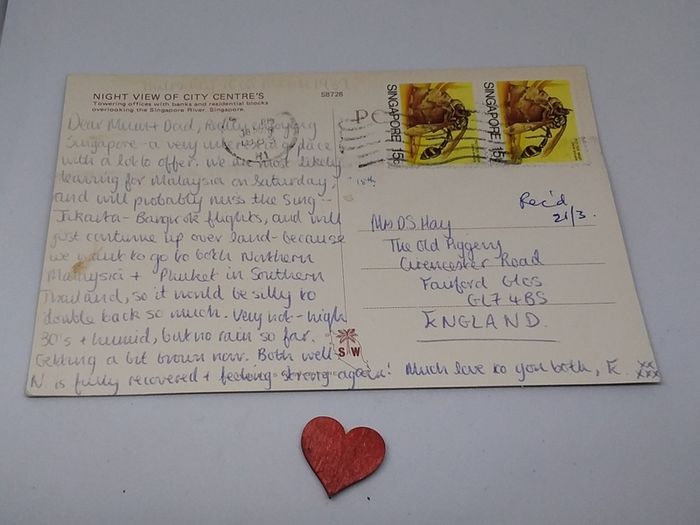 NIGHT VIEW OF CITY CENTRE'S
Towering offices with banks and residential blocks
overlooking the Singapore River, Singapore.
S8728
Dear Mum + Dad, Really enjoying
Singapore - a very interesting place
with a lot to offer. We are most likely
leaving for Malaysia on Saturday,
and will probably miss the Sing -
Jakarta - Bangkok flights, and will
just continue up over land - because
we want to go to both Northern
Malaysia + Phuket in Southern
Thailand, so it would be silly to
double back so much. Very hot - high
30's + humid, but no rain so far.
Getting a bit brown now. Both well -
N is fully recovered + feeling strong again! Much love to you both, K. xx
xxx
PO
SINGAPORE 15c
SINGAPORE 15c
Rec'd
21/3.
Mrs D.S. Hay
The Old Piggery
Cirencester Road
Fairford Glos
GL7 4BS
ENGLAND.
S W